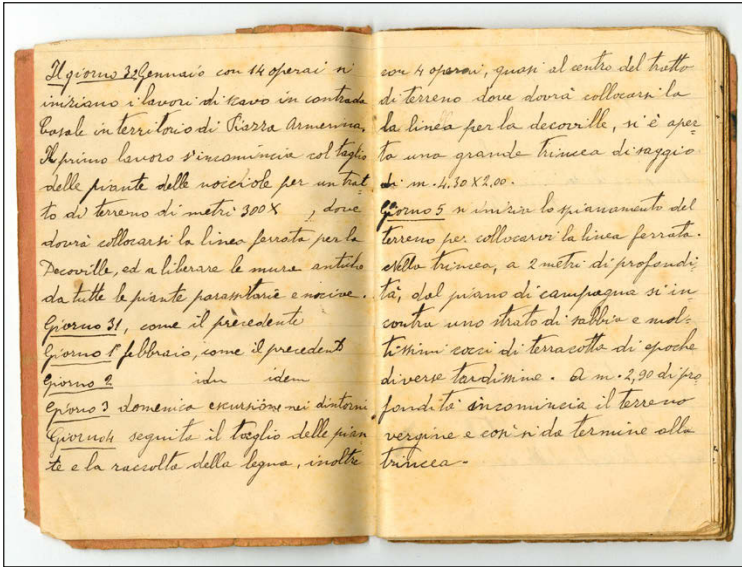 Il giorno 30 Gennaio con 14 operai si
iniziano i lavori di scavo in contrada
Casale in territorio di Piazza Armerina,
Il primo lavoro s'incomincia col taglio
delle piante delle nocciole per un trat
to di terreno di metri 300 X , dove
dovrà collocarsi la linea ferrata per la
Decoville, ed a liberare le mura antiche
da tutte le piante parassitarie e nocive.
Giorno 31, come il precedente
Giorno 1° febbraio, come il precedente
Giorno 2 idem idem
Giorno 3 domenica escursione nei dintorni
Giorno 4 seguita il taglio delle pian
te e la raccolta della legna, inoltre
con 4 operai, quasi al centro del tratto
di terreno dove dovrà collocarsi la
la linea per la decoville, si è aper=
ta una grande trincea di saggio
di m. 4.30 X 2,00.
Giorno 5 si inizia lo spianamento del
terreno per collocarvi la linea ferrata.
Nella trincea, a 2 metri di profondi=
tà, dal piano di campagna si in=
contra uno strato di sabbia e mol=
tissimi cocci di terracotta di epoche
diverse tardissime. A m. 2,90 di pro
fondità incomincia il terreno
vergine e così si da termine alla
trincea.